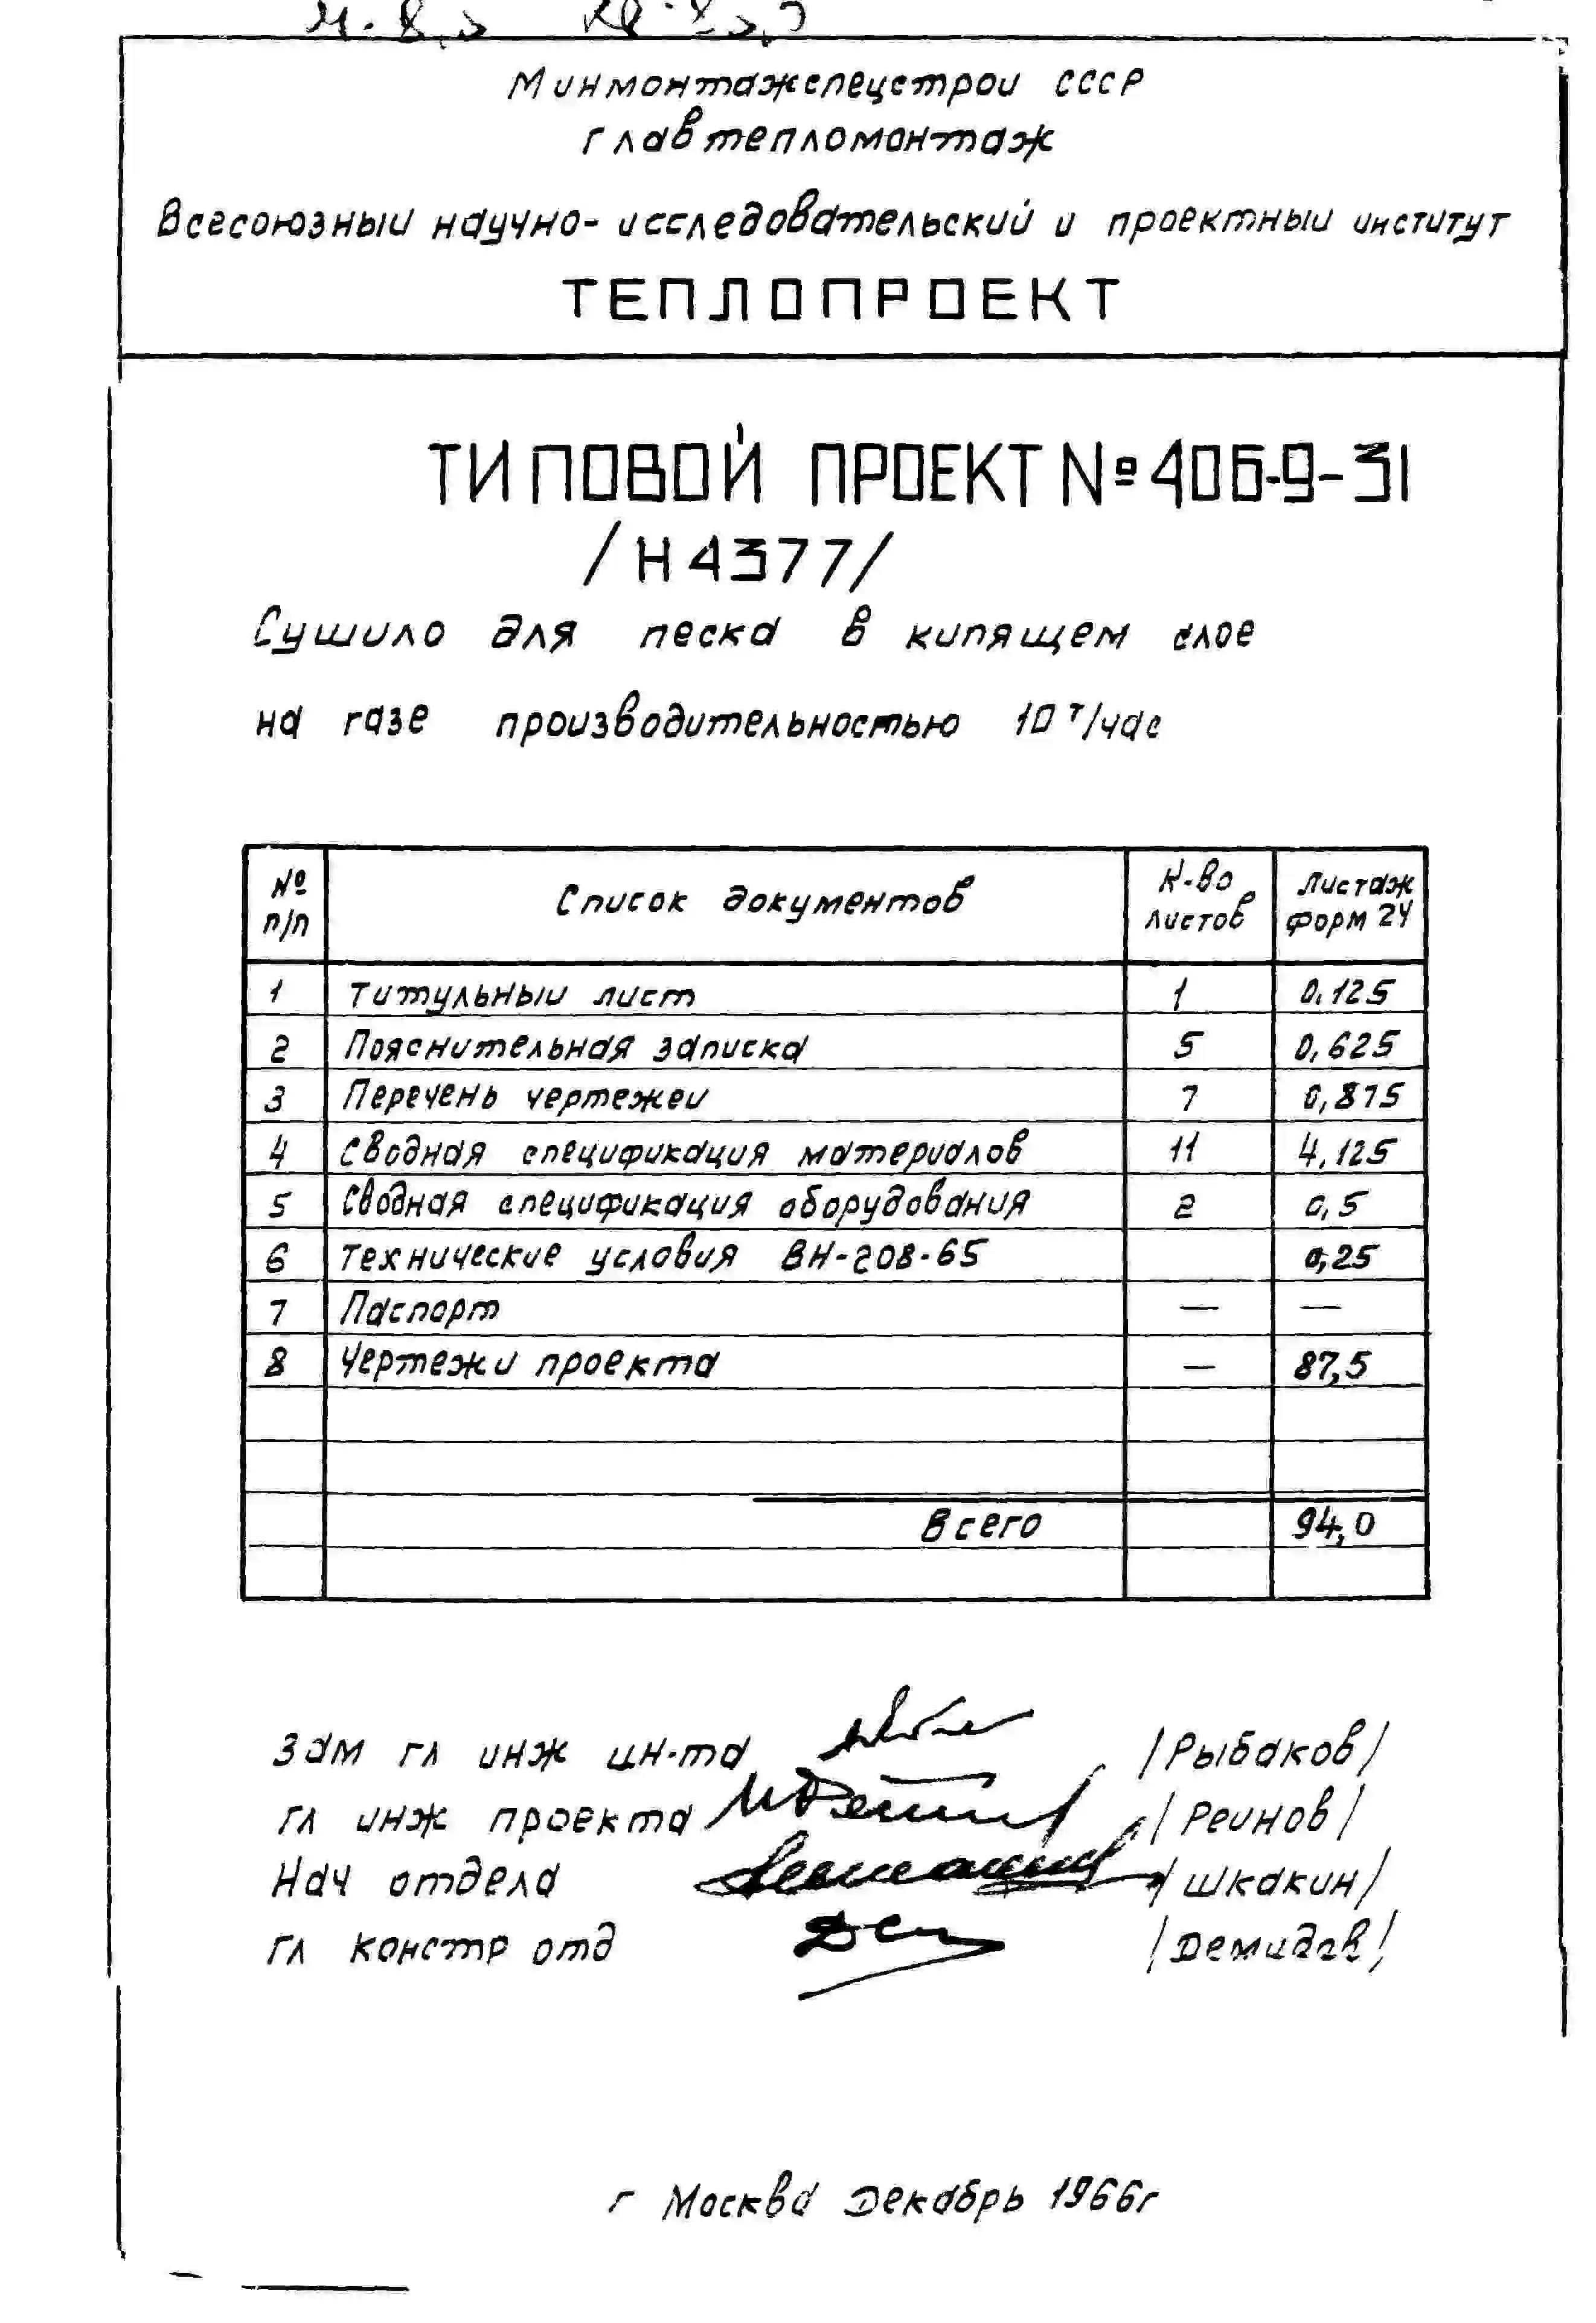 Минмонтажспецстрои СССР
главтепломонтаж
Всесоюзныи научно-исследовательский и проектныи институт
ТЕПЛОПРОЕКТ
ТИПОВОЙ ПРОЕКТ №406-9-31
/Н4377/
Сушило для песка в кипящем слое
на газе производительностью 10 т/час
№ п/п Список документов К-во листов Листаж форм 24
1 титульныи лист 1 0.125
2 Пояснительная записка 5 0,625
3 Перечень чертежеи 7 0,875
4 Сводная спецификация материалов 11 4.125
5 Сводная спецификация оборудования 2 0,5
6 Технические условия ВН-208-65 0,25
7 Паспорт — —
8 Чертежи проекта — 87,5
Всего 94,0
Зам гл инж ин-та /Рыбаков/
гл инж проекта /Реинов/
Нач отдела /шкакин/
гл констр отд /Демидов/
г Москва Декабрь 1966г